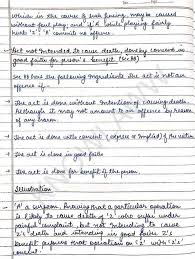 which in the course of such fencing may be caused
without foul play; and if 'A' while playing fairly
hurts 'Z', 'A' commits no offence.
Act not Intended to cause death, done by consent in
good faith for person's benefit (Sec 88)
Sec 88 has the following Ingredients. The act is not an
offence if -
→ The act is done without intention of causing death,
Although it may not amount from offence by harm
or any reason.
→ The act is done with consent (express or Implied) of the victim
→ The act is done in good faith
→ The act is done for benefit of the person
Illustration
'A' a surgeon, knowing that a particular operation
is likely to cause death of 'Z' who suffer under
painful complaint but not intending to cause
Z's death and intended in good faith Z's
benefit performs that operation on 'Z' with 'Z's'